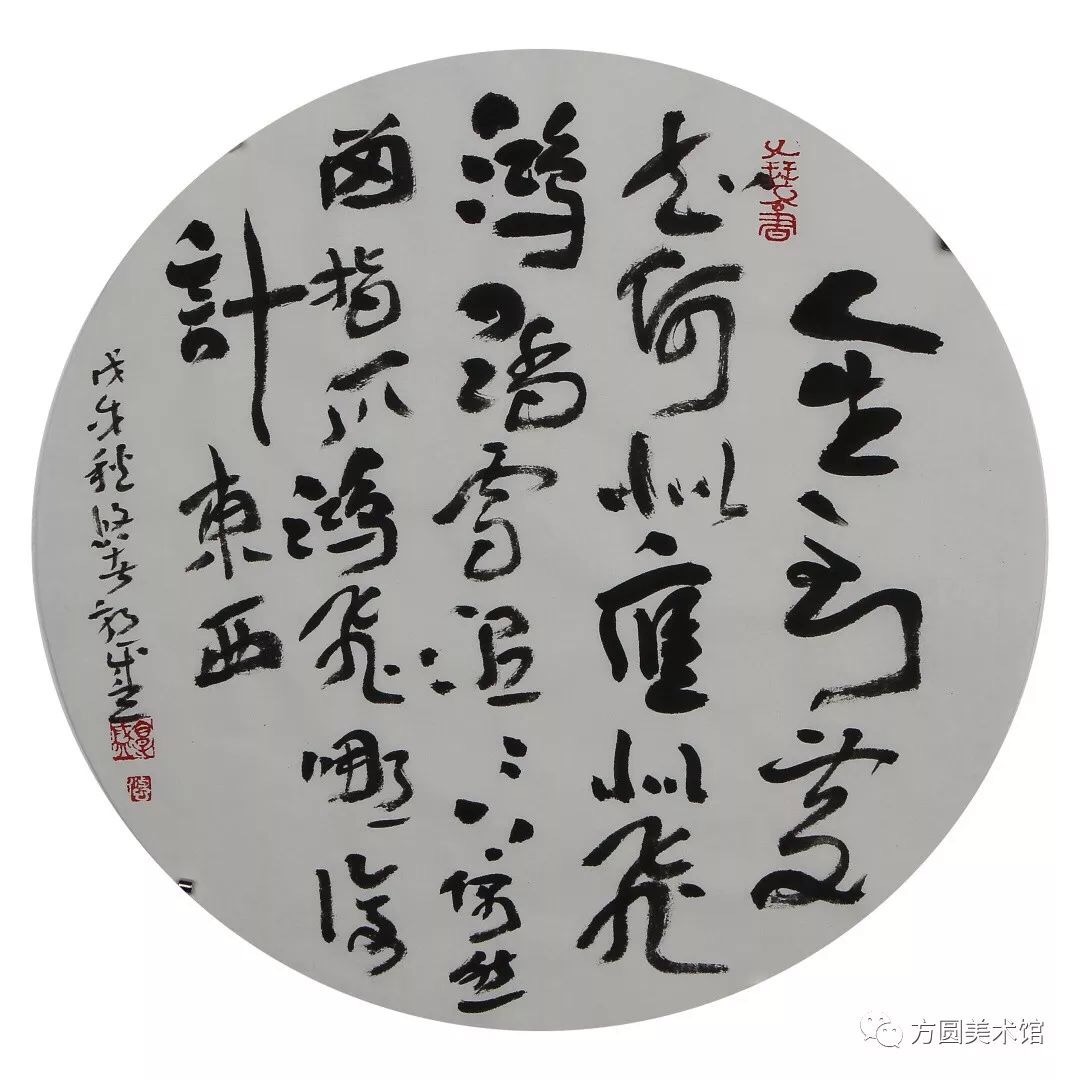 人生到處
知何似應似飛
鴻踏雪泥〻上偶然
留指爪鴻飛哪復
計東西
戊戌秋
方圆美术馆